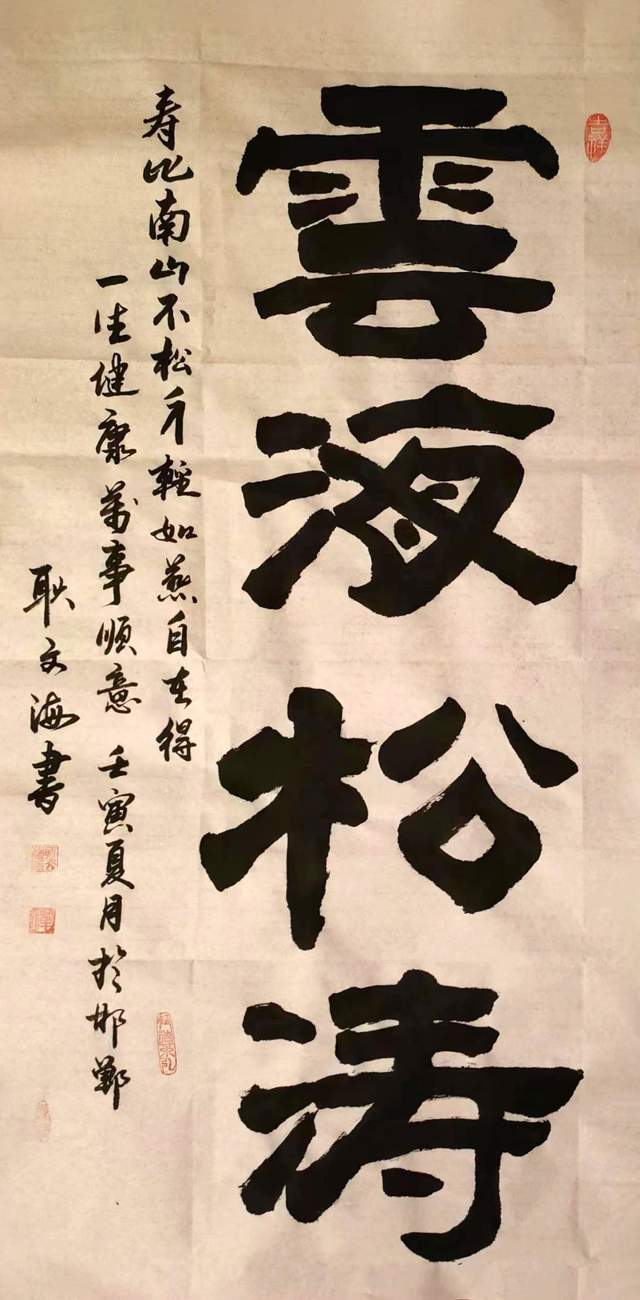 雲海松涛
寿比南山不松手輕如燕自在得
一生健康萬事順意 壬寅夏月於邯鄲
耿文海書
吉祥